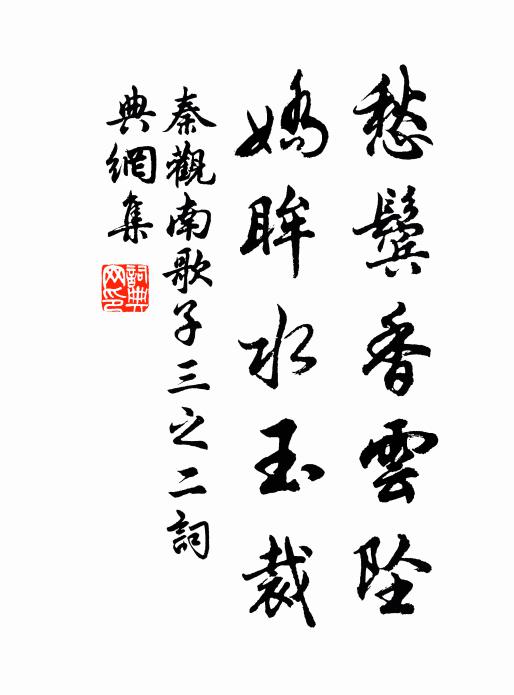 愁鬓香雲坠
嬌眸水玉裁
秦觀南歌子三之二詞
典網集
詞典
网印